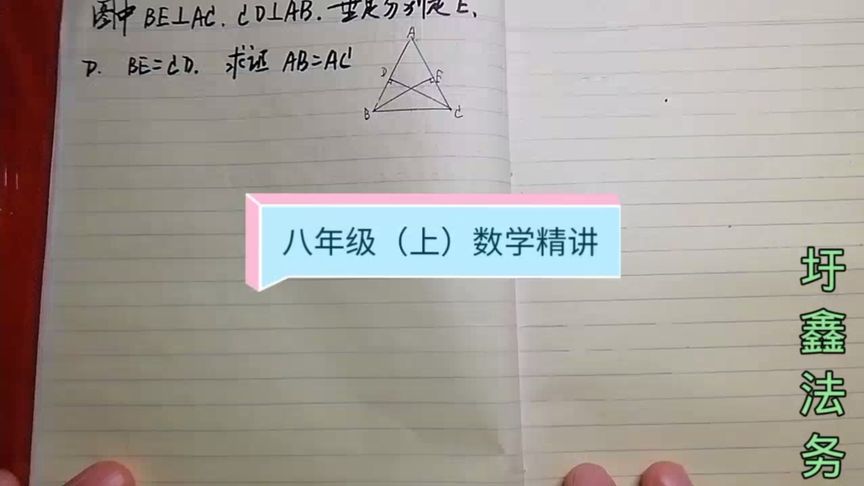 图中 BE⊥AC. CD⊥AB. 垂足分别是 E、
D. BE=CD. 求证 AB=AC
A
D
E
B
C
八年级（上）数学精讲
圩鑫法务